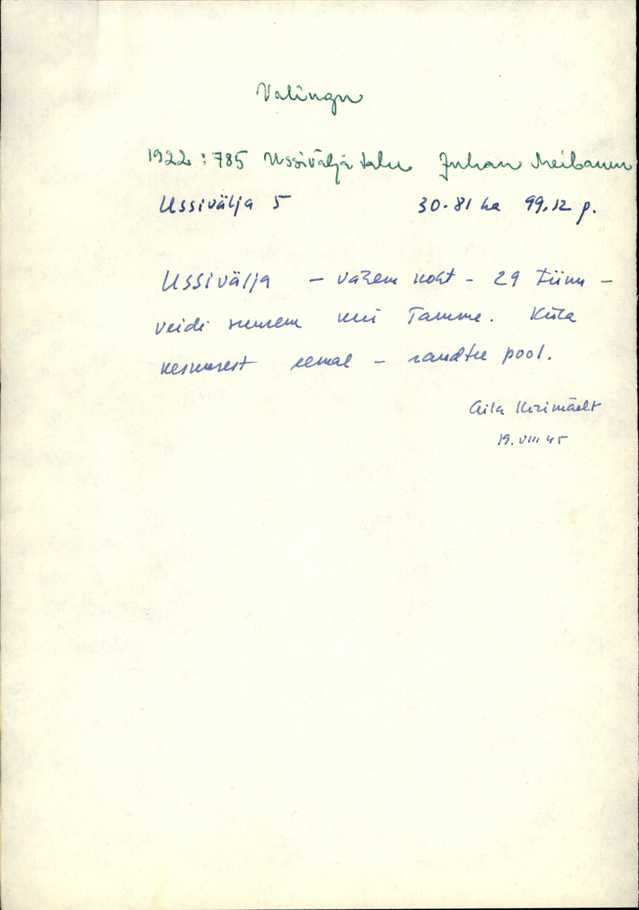 Valingu
1922 : 785 Ussivälja talu Juhan Meibaum
Ussivälja 5 30.81 ha 99.12 p.
Ussivälja – vähem koht – 29 tiinu –
veidi suurem kui Tamme. Küla
keskusest eemal – raudtee pool.
Aita Kurimäelt
19. VIII 45